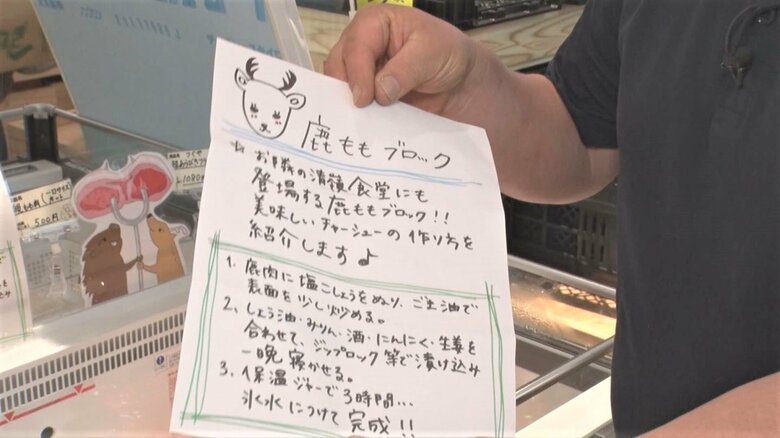 鹿ももブロック
☆お隣の清嶺食堂にも
登場する鹿ももブロック!!
美味しいチャーシューの作り方を
紹介します♪
1. 鹿肉に塩こしょうをぬり、ごま油で
表面を少し炒める。
2. しょう油・みりん・酒・にんにく・生姜を
合わせて、ジップロック等で漬け込み
一晩寝かせる。
3. 保温ジャーで3時間…
氷水につけて完成!!
一口サイズ
カット
500円
つくや
1080